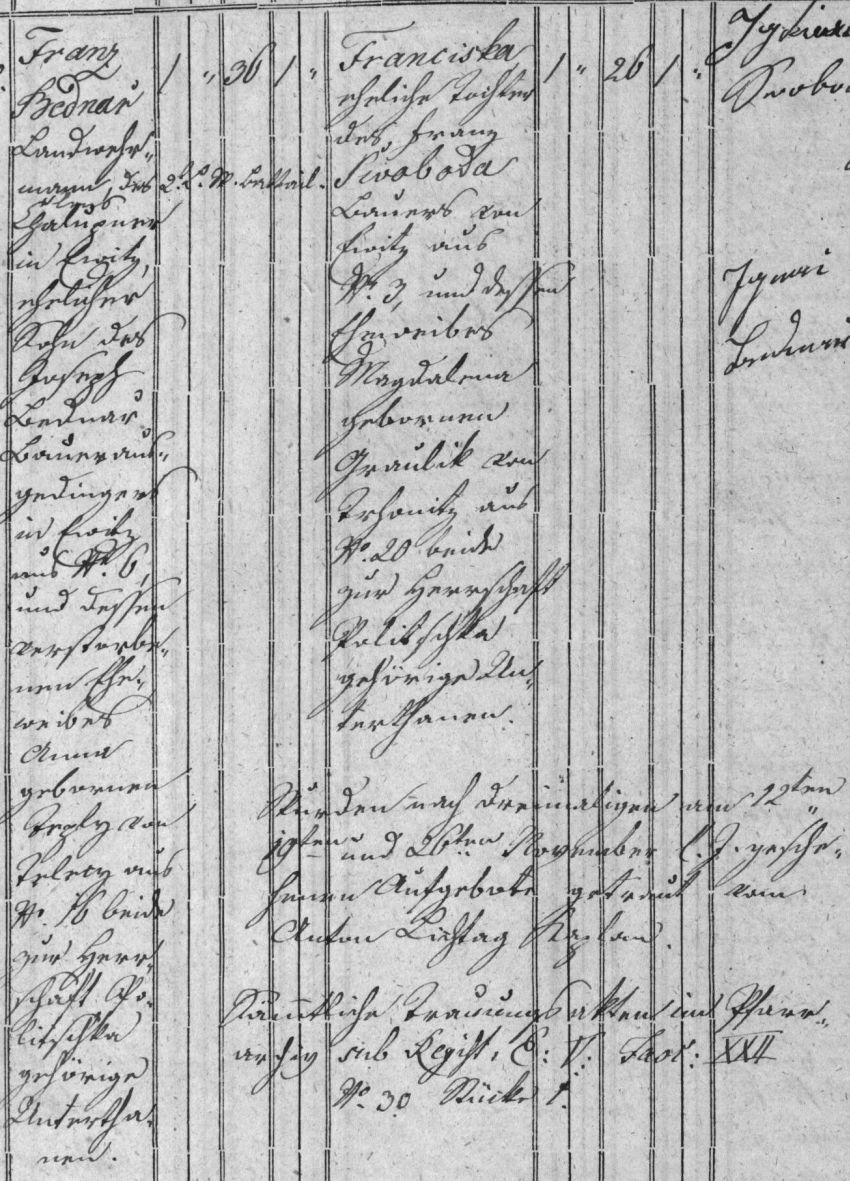 Franz
Bednař
Landwehr-
mann des 2. L. W. Battail.
Chalupner
in Ewitz,
ehelicher
Sohn des
Joseph
Bednar
Baueraus-
gedingers
in Ewitz
aus N. 6,
und dessen
verstorbe-
nen Ehe-
weibes
Anna
gebornen
Teply von
Telecy aus
N. 16 beide
zur Herr-
schaft Po-
litschka
gehörige
Untertha-
nen.
1 " 36 1 "
Franciska
eheliche Tochter
des Franz
Swoboda
Bauers von
Ewitz aus
N. 3, und dessen
Eheweibes
Magdalena
gebornen
Graulik von
Trhonitz aus
N. 20 beide
zur Herrschaft
Politschka
gehörige Un-
terthanen.
1 " 26 1 "
Swobo
Ignai
Bednar
Wurden nach dreimaligen am 12ten
19ten und 26ten November l. J. gesche-
henen Aufgebote getraut vom
Anton Lichtag Kaplan.
Sämtliche Trauungsakten im Pfarr-
archiv sub Regist. C: V: Fasc: XXII
N. 30 Stücke 1.